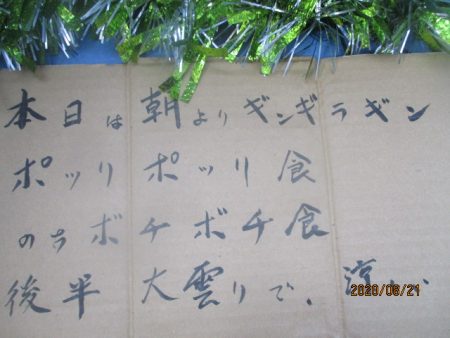 本日は朝よりギンギラギン
ポッリポッリ食
のちボチボチ食
後半大雲りで、涼しい
2020/06/21